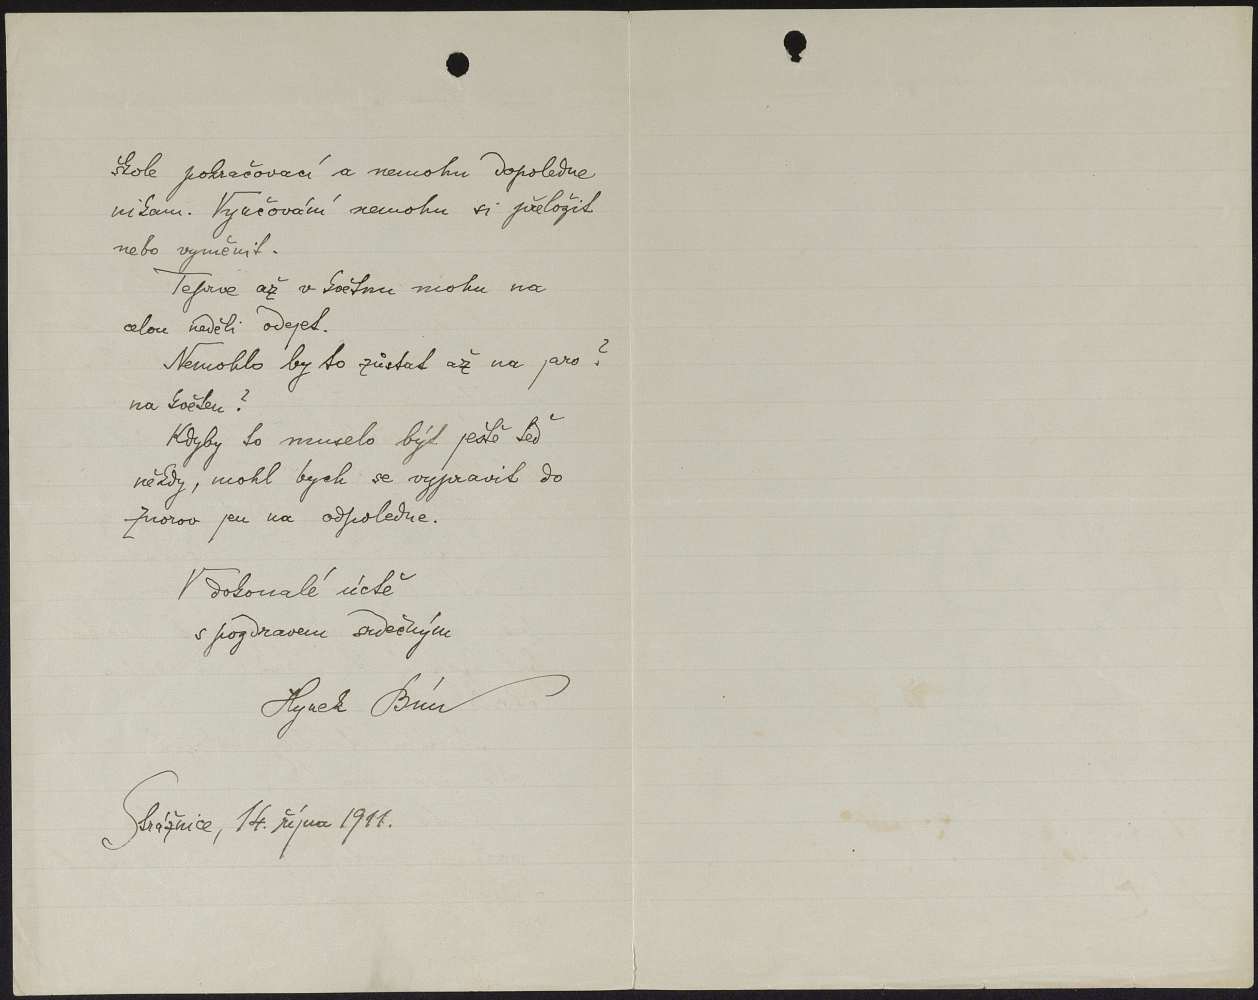 škole pokračovací a nemohu dopoledne
nikam. Vyučování nemohu si přeložit
nebo vyměnit.
Teprve až v květnu mohu na
celou neděli odejet.
Nemohlo by to zůstat až na jaro?
na květen?
Kdyby to muselo být ještě teď
někdy, mohl bych se vypravit do
Znorov jen na odpoledne.
V dokonalé úctě
s pozdravem srdečným
Hynek Bím
Strážnice, 14. října 1911.